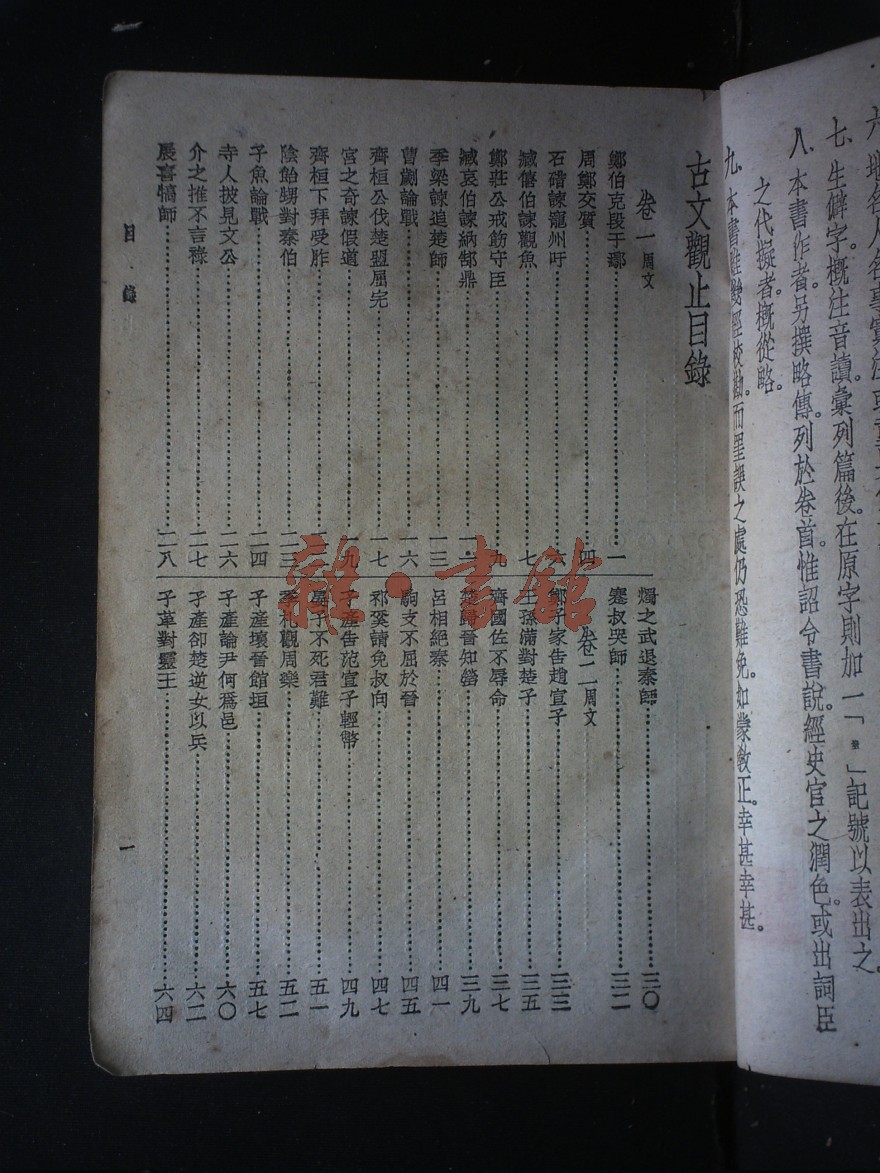 七、生僻字。概注音讀。彙列篇後。在原字則加一「」記號以表出之。
八、本書作者。另撰略傳。列於卷首。惟詔令書說。經史官之潤色。或出詞臣
之代擬者。概從略。
九、本書雖幾經校勘。而罣誤之處仍恐難免。如蒙教正。幸甚幸甚。
古文觀止目錄
卷一 周文
鄭伯克段于鄢 一
周鄭交質 四
石碏諫寵州吁 六
臧僖伯諫觀魚 七
鄭莊公戒飭守臣 九
臧哀伯諫納郜鼎
季梁諫追楚師 一三
曹劌論戰 一六
齊桓公伐楚盟屈完 一七
宮之奇諫假道 一九
齊桓下拜受胙
陰飴甥對秦伯 二三
子魚論戰 二四
寺人披見文公 二六
介之推不言祿 二七
展喜犒師 二八
燭之武退秦師 三〇
蹇叔哭師 三二
卷二 周文
鄭子家告趙宣子 三三
王孫滿對楚子 三五
齊國佐不辱命 三七
楚歸晉知罃 三九
呂相絕秦 四一
駒支不屈於晉 四五
祁奚請免叔向 四七
子產告范宣子輕幣 四九
晏子不死君難 五一
季札觀周樂 五二
子產壞晉館垣 五七
子產論尹何爲邑 六〇
子產卻楚逆女以兵 六二
子革對靈王 六四
目錄
一
雜·書館